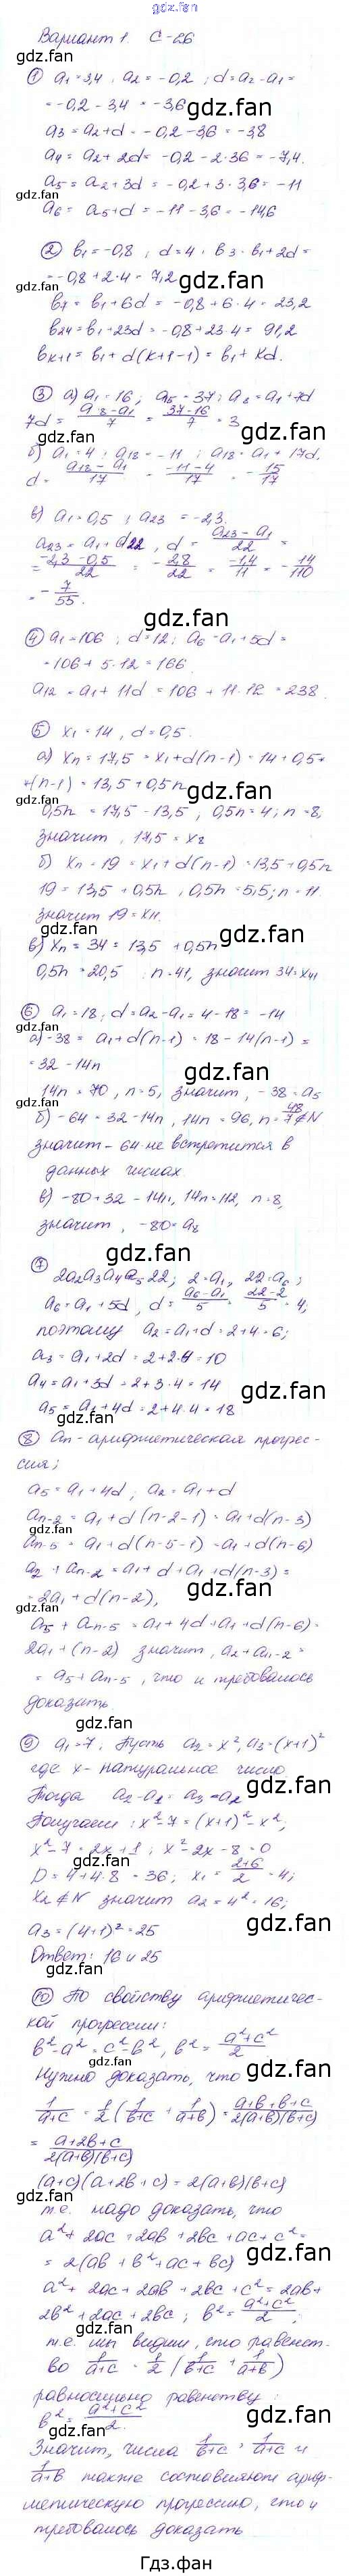 gdz.fan
Вариант 1. С-26
① a₁=3,4, a₂=-0,2; d=a₂-a₁=
=-0,2-3,4=-3,6
gdz.fan
a₃=a₂+d=-0,2-3,6=-3,8
a₄=a₂+2d=-0,2-2·3,6=-7,4.
gdz.fan
a₅=a₂+3d=-0,2+3·3,6=-11
a₆=a₅+d=-11-3,6=-14,6
② b₁=-0,8, d=4, b₃=b₁+2d=
gdz.fan
=-0,8+2·4=7,2
b₇=b₁+6d=-0,8+6·4=23,2
b₂₄=b₁+23d=-0,8+23·4=91,2
bₖ₊₁=b₁+d(k+1-1)=b₁+kd.
gdz.fan
③ а) a₁=16, a₈=37; a₈=a₁+7d
7d=(a₈-a₁)/7=(37-16)/7=3
gdz.fan
б) a₁=4; a₁₈=-11; a₁₈=a₁+17d.
d=(a₁₈-a₁)/17=(-11-4)/17=-15/17
gdz.fan
в) a₁=0,5, a₂₃=-2,3.
a₂₃=a₁+d22, d=(a₂₃-a₁)/22=
=(-2,3-0,5)/22=-2,8/22=-1,4/11=-14/110
=-7/55.
gdz.fan
④ a₁=106; d=12; a₆=a₁+5d=
=106+5·12=166
gdz.fan
a₁₂=a₁+11d=106+11·12=238.
⑤ x₁=14, d=0,5.
gdz.fan
а) xₙ=17,5=x₁+d(n-1)=14+0,5·
·(n-1)=13,5+0,5n
gdz.fan
0,5n=17,5-13,5, 0,5n=4; n=8,
значит, 17,5=x₈
gdz.fan
б) xₙ=19=x₁+d(n-1)=13,5+0,5n
19=13,5+0,5n, 0,5n=5,5; n=11
значит 19=x₁₁.
gdz.fan
в) xₙ=34=13,5+0,5n
0,5n=20,5 n=41, значит 34=x₄₁
gdz.fan
⑥ a₁=18; d=a₂-a₁=4-18=-14
а) -38=a₁+d(n-1)=18-14(n-1)=
=32-14n
14n=70, n=5, значит, -38=a₅
gdz.fan
б) -64=32-14n, 14n=96, n=48/7∉N
значит -64 не встретится в
gdz.fan
данных числах
в) -80=32-14n, 14n=112, n=8,
значит, -80=a₈
gdz.fan
⑦ 2a₂a₃a₄a₅22; 2=a₁, 22=a₆;
a₆=a₁+5d, d=(a₆-a₁)/5=(22-2)/5=4;
gdz.fan
поэтому a₂=a₁+d=2+4=6;
a₃=a₁+2d=2+2·4=10
a₄=a₁+3d=2+3·4=14
gdz.fan
a₅=a₁+4d=2+4·4=18
gdz.fan
⑧ aₙ-арифметическая прогрес-
сия;
gdz.fan
a₅=a₁+4d, a₂=a₁+d
aₙ₋₂=a₁+d(n-2-1)=a₁+d(n-3)
gdz.fan
aₙ₋₅=a₁+d(n-5-1)=a₁+d(n-6)
a₂+aₙ₋₂=a₁+d+a₁+d(n-3)=
=2a₁+d(n-2),
gdz.fan
a₅+aₙ₋₅=a₁+4d+a₁+d(n-6)=
2a₁+(n-2) значит, a₂+aₙ₋₂=
gdz.fan
=a₅+aₙ₋₅, что и требовалось
доказать
gdz.fan
⑨ a₁=7. Пусть a₂=x², a₃=(x+1)²
где x-натуральное число.
gdz.fan
Тогда a₂-a₁=a₃-a₂
Получаем: x²-7=(x+1)²-x²,
gdz.fan
x²-7=2x+1; x²-2x-8=0
gdz.fan
D=4+4·8=36; x₁=(2+6)/2=4;
x₂∉N значит a₂=4²=16;
gdz.fan
a₃=(4+1)²=25
Ответ: 16 и 25
gdz.fan
⑩ По свойству арифметичес-
кой прогрессии:
gdz.fan
b²-a²=c²-b², b²=(a²+c²)/2
Нужно доказать, что
gdz.fan
1/(a+c)=1/2(1/(b+c)+1/(a+b))=(a+b+b+c)/(2(a+b)(b+c))
=(a+2b+c)/(2(a+b)(b+c))
gdz.fan
(a+c)(a+2b+c)=2(a+b)(b+c)
gdz.fan
т.е. надо доказать, что
a²+2ac=2ab+2bc+ac+c²=
=2(ab+b²+ac+bc)
gdz.fan
a²+2ac+2ab+2bc+c²=2ab+
gdz.fan
2b²+2ac+2bc; b²=(a²+c²)/2;
т.е. мы видим, что равенст-
gdz.fan
во 1/(a+c)=1/2(1/(b+c)+1/(a+b))
равносильно равенству:
gdz.fan
b²=(a²+c²)/2.
gdz.fan
Значит, числа 1/(b+c), 1/(a+c) и
1/(a+b) также составляют ариф-
gdz.fan
метическую прогрессию, что и
требовалось доказать
Гдз.фан